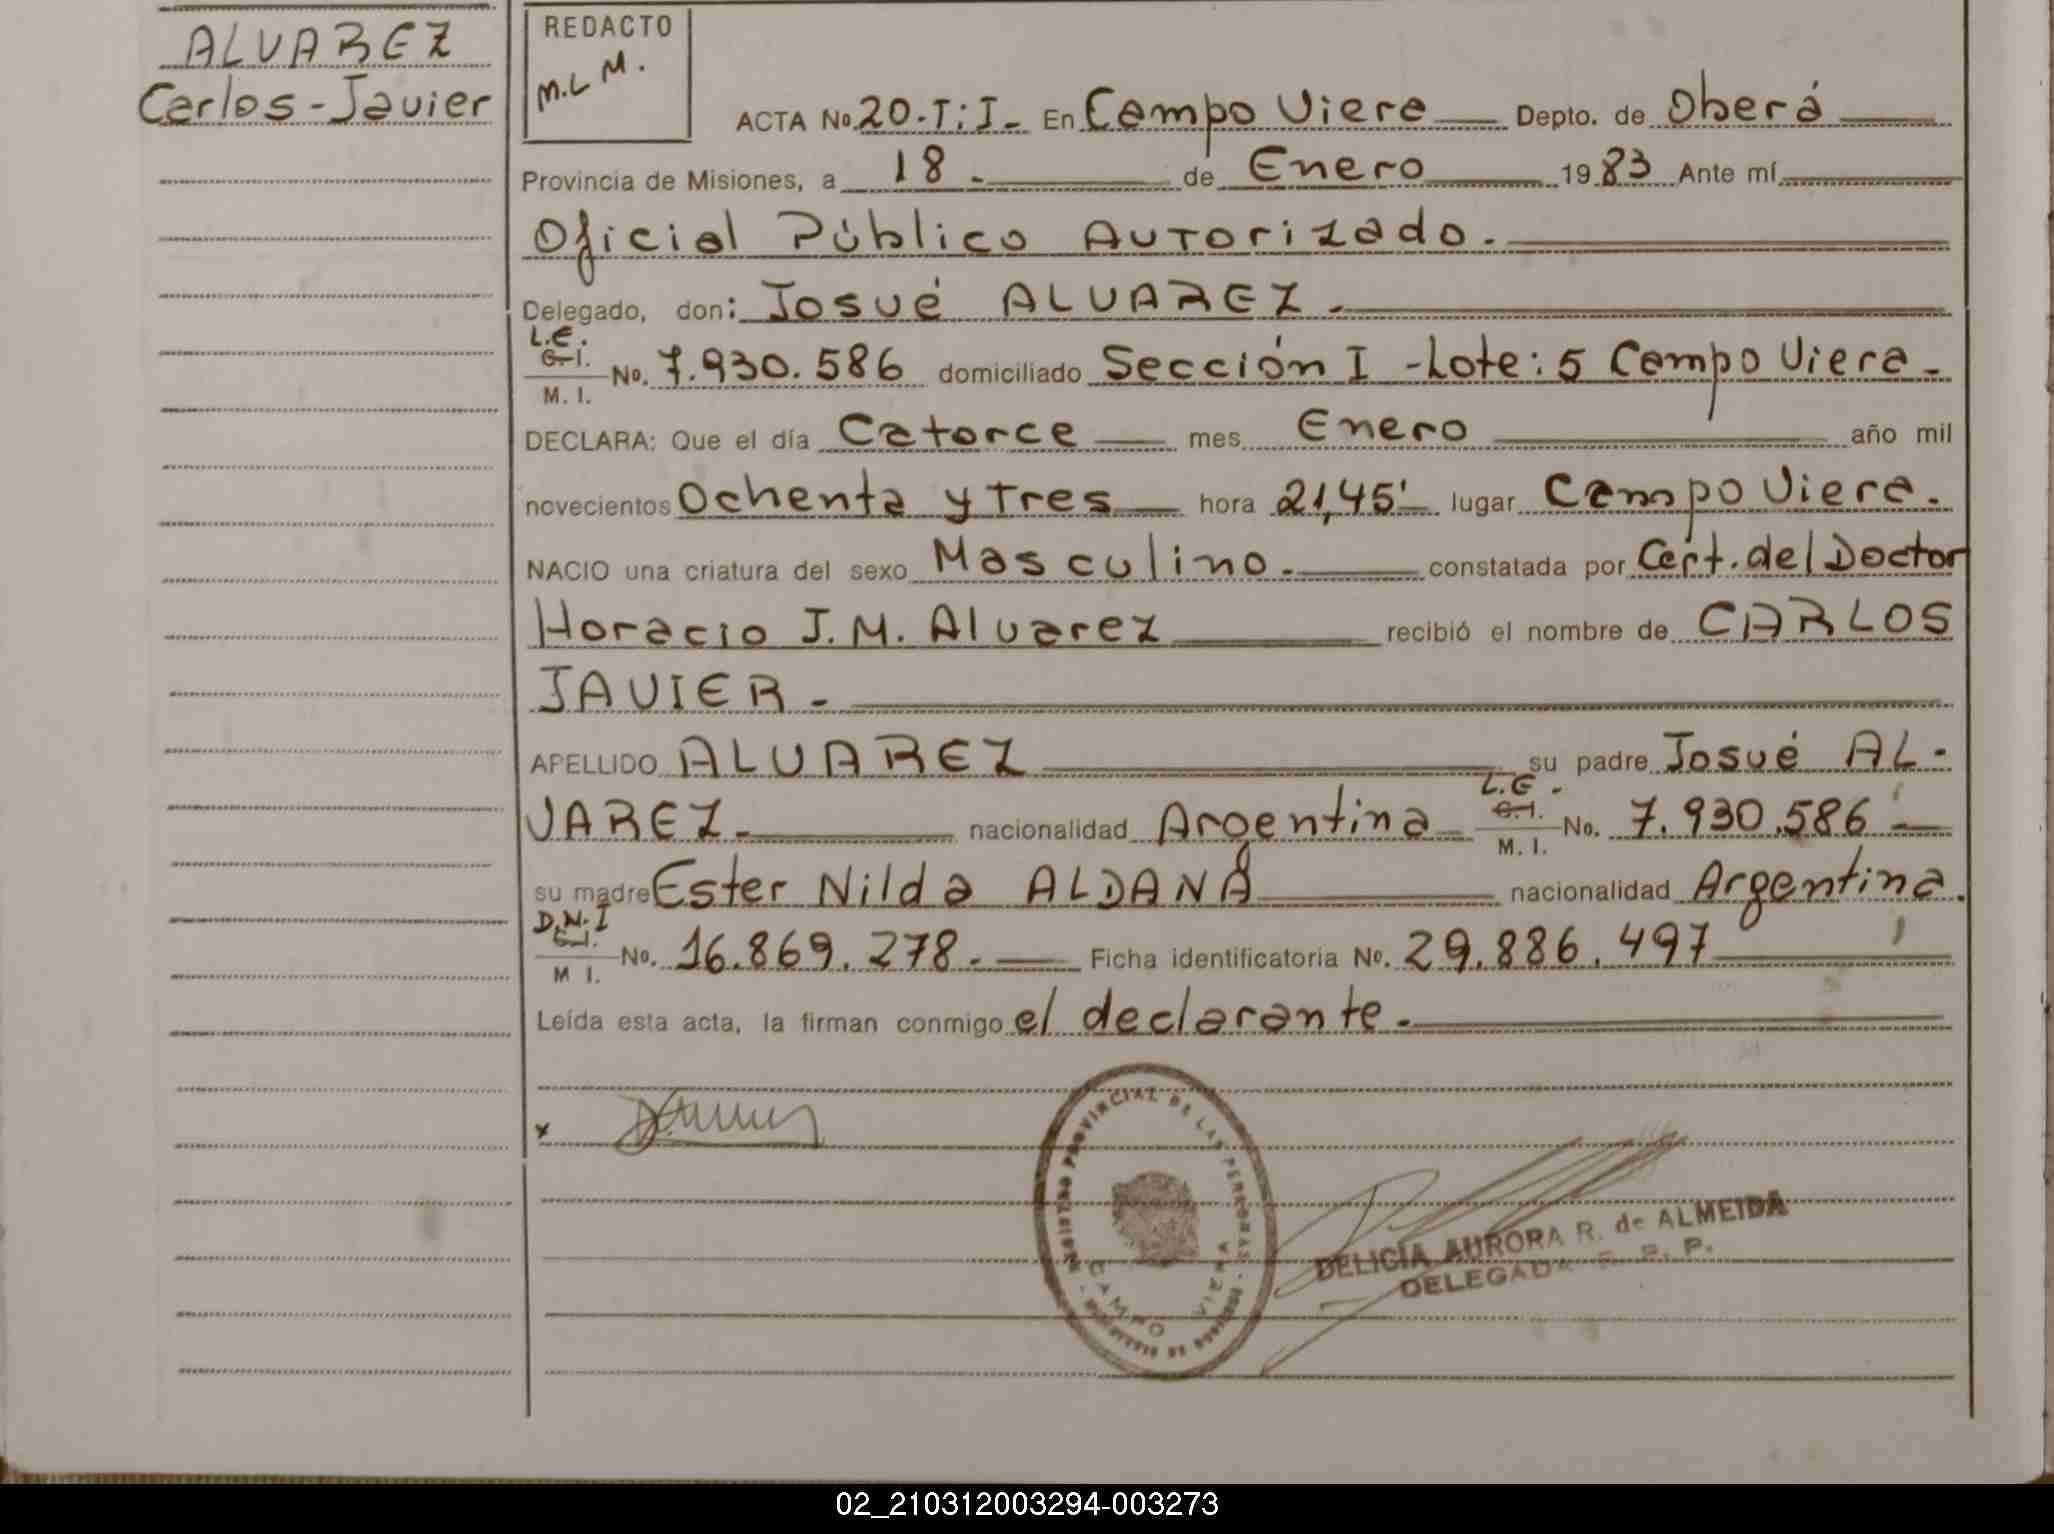 ALVAREZ
Carlos-Javier
REDACTO
M.L M.
ACTA No. 20.T:I- En Campo Viera Depto. de Oberá
Provincia de Misiones, a 18.- de Enero 1983 Ante mí
Oficial Público Autorizado.-
Delegado, don: Josué ALVAREZ.-
L.E.
C.I.
M. I.
No. 7.930.586 domiciliado Sección I -Lote: 5 Campo Viera.-
DECLARA: Que el día Catorce mes Enero año mil
novecientos Ochenta y Tres hora 21,45' lugar Campo Viera.
NACIO una criatura del sexo Masculino.- constatada por Cert. del Doctor
Horacio J.M. Alvarez recibió el nombre de CARLOS
JAVIER.-
APELLIDO ALVAREZ su padre Josué AL-
VAREZ.- nacionalidad Argentina L.E. C.I. M. I. No. 7.930.586
su madre Ester Nilda ALDANA nacionalidad Argentina.
D.N.I
C.I.
M I.
No. 16.869.278.- Ficha identificatoria No. 29.886.497
Leída esta acta, la firman conmigo el declarante.-
x
REGISTRO PROVINCIAL DE LAS PERSONAS
CAMPO VIERA
DELICIA AURORA R. de ALMEIDA
DELEGADA R. P. P.
02_210312003294-003273